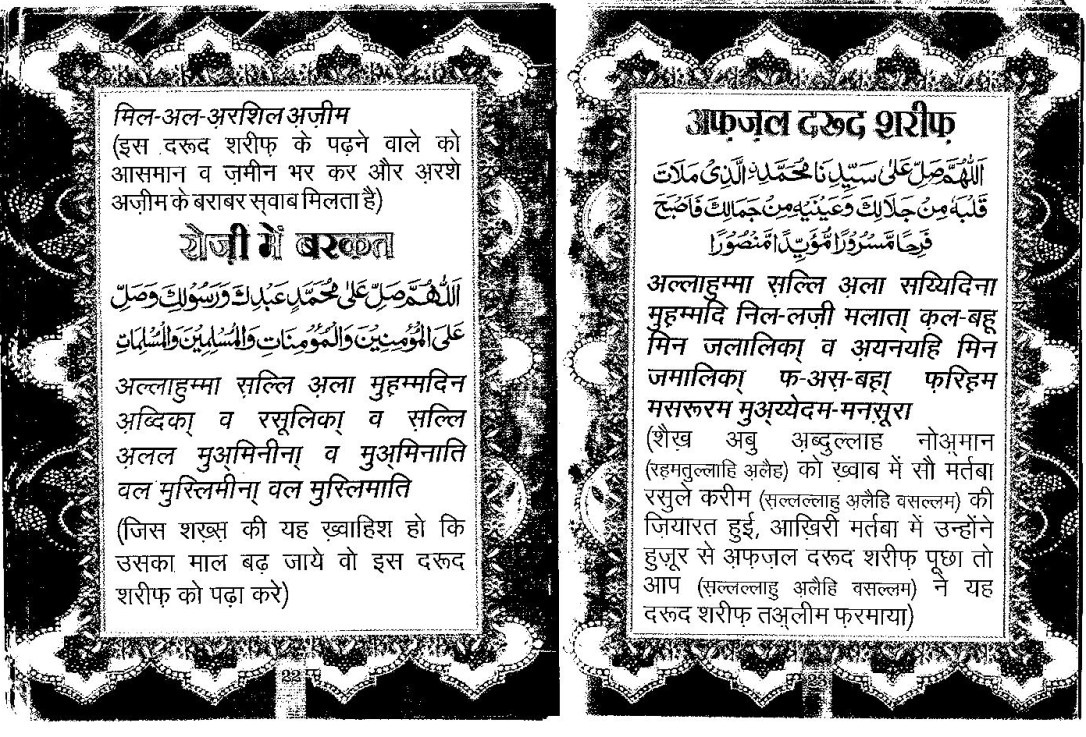 मिल-अल-अ़रशिल अज़ीम
(इस दरूद शरीफ़ के पढ़ने वाले को
आसमान व ज़मीन भर कर और अ़रशे
अज़ीम के बराबर स्वाब मिलता है)
रोज़ी में बरकत
اَللّٰهُمَّ صَلِّ عَلٰی مُحَمَّدٍ عَبْدِكَ وَرَسُوْلِكَ وَصَلِّ
عَلَی الْمُؤْمِنِیْنَ وَالْمُؤْمِنَاتِ وَالْمُسْلِمِیْنَ وَالْمُسْلِمَاتِ
अल्लाहुम्मा स़ल्लि अ़ला मुह़म्मदिन
अ़ब्दिका् व रसूलिका् व स़ल्लि
अ़लल मुअ्मिनीना् व मुअ्मिनाति
वल मुस्लिमीना् वल मुस्लिमाति
(जिस शख़्स़ की यह ख़्वाहिश हो कि
उसका माल बढ़ जाये वो इस दरूद
शरीफ़ को पढ़ा करे)
22
अफ़ज़ल दरूद शरीफ़
اَللّٰهُمَّ صَلِّ عَلٰی سَیِّدِنَا مُحَمَّدِنِ الَّذِیْ مَلَاتَ
قَلْبَهٗ مِنْ جَلَالِكَ وَعَیْنَیْهِ مِنْ جَمَالِكَ فَاَصْبَحَ
فَرِحًا مَّسْرُوْرًا مُّؤَیِّدًا مَّنْصُوْرًا
अल्लाहुम्मा स़ल्लि अ़ला सय्यिदिना
मुह़म्मदि निल-लज़ी मलाता् कल-बहू
मिन जलालिका् व अ़यनयहि मिन
जमालिका् फ-अस़-बह़ा् फ़रिह़म
मसरूरम मुअ़य्येदम-मनस़ूरा
(शैख़ अबु अ़ब्दुल्लाह नोअ़मान
(रह़मतुल्लाहि अ़लैह) को ख़्वाब में सौ मर्तबा
रसुले करीम (सल्लल्लाहु अ़लैहि वसल्लम) की
ज़ियारत हुई, आख़िरी मर्तबा में उन्होंने
हुज़ूर से अफ़ज़ल दरूद शरीफ़ पूछा तो
आप (स़ल्लल्लाहु अ़लैहि वसल्लम) ने यह
दरूद शरीफ़ तअ़्लीम फ़रमाया)
23